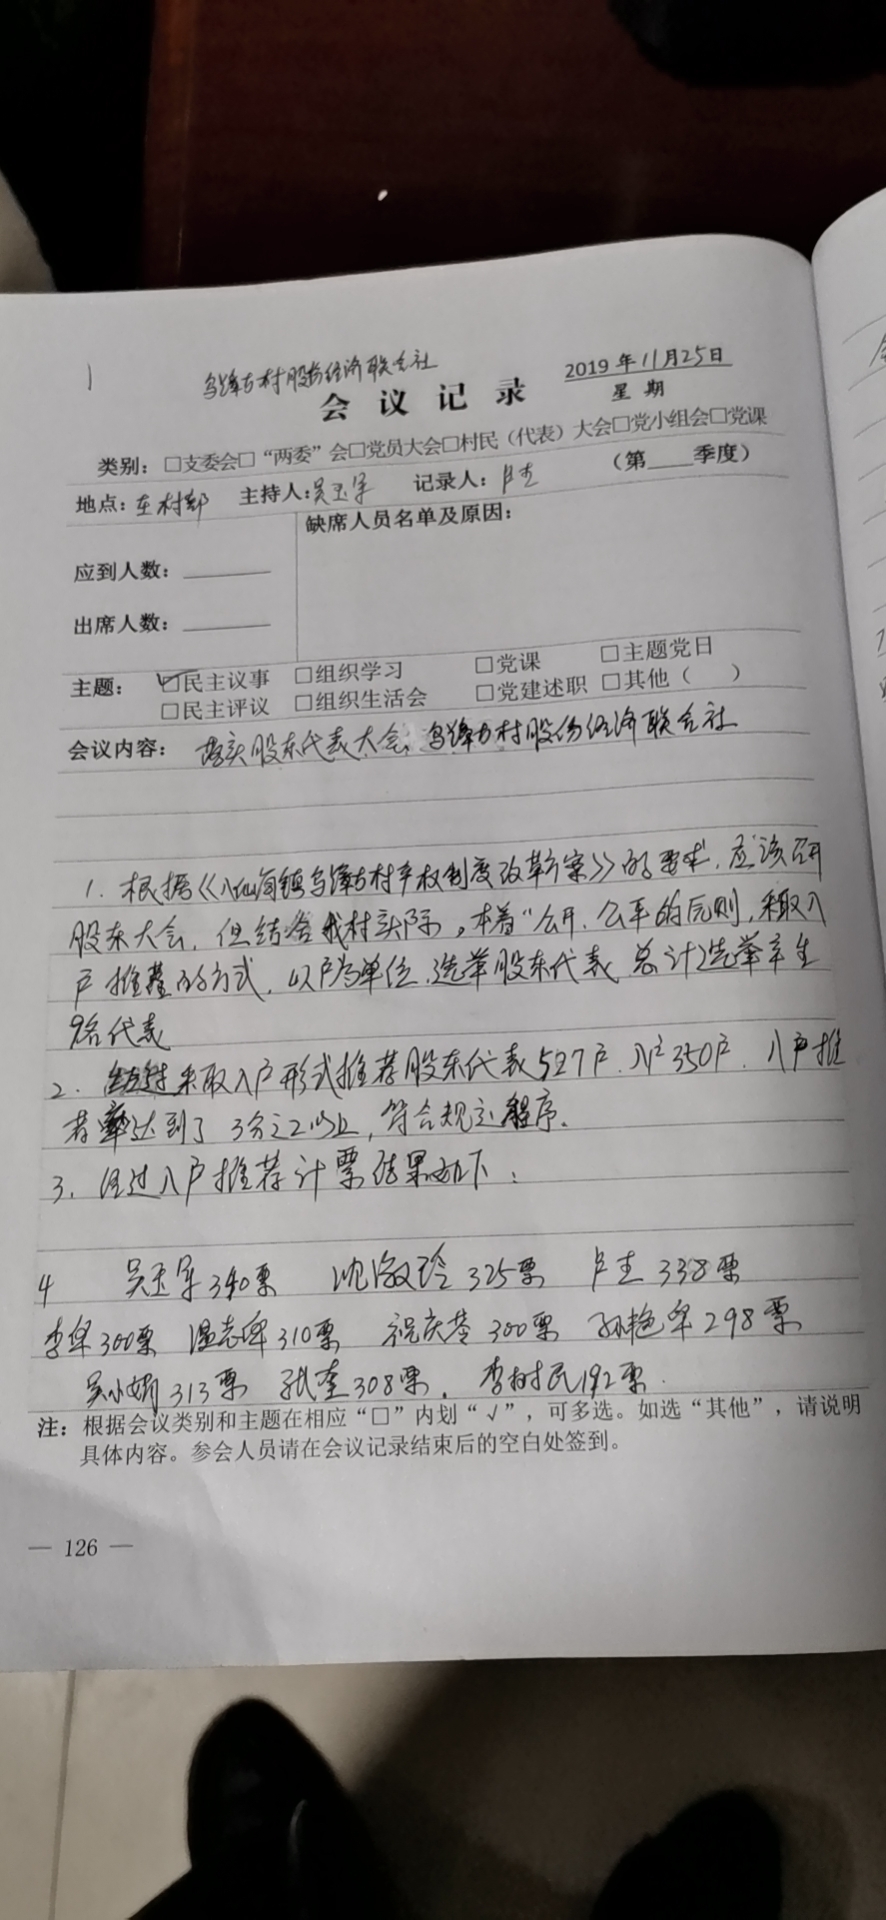 1
村股份经济联合社
2019年11月25日
会议记录
星期
类别：□支委会□“两委”会□党员大会□村民（代表）大会□党小组会□党课
（第____季度）
地点：在村部 主持人：吴玉军 记录人：卢志
缺席人员名单及原因：
应到人数：
出席人数：
主题： ☑民主议事 □组织学习 □党课 □主题党日
□民主评议 □组织生活会 □党建述职 □其他（ ）
会议内容： 落实股东代表大会 村股份经济联合社
1. 根据《八仙筒镇 村产权制度改革方案》的要求，应该召开
股东大会，但结合我村实际，本着“公开、公平的原则，采取入
户推荐的方式，以户为单位，选举股东代表 总计选举产生
9名代表
2. 采取入户形式推荐股东代表527户，入户350户，入户推
荐率达到了3分之2以上，符合规定程序。
3. 经过入户推荐计票结果如下：
4 吴玉军340票 沈淑玲325票 卢志338票
李军300票 温志 310票 祝庆 300票 孙艳军298票
吴小娟313票 张奎308票. 李树民192票.
注：根据会议类别和主题在相应“□”内划“√”，可多选。如选“其他”，请说明
具体内容。参会人员请在会议记录结束后的空白处签到。
— 126 —